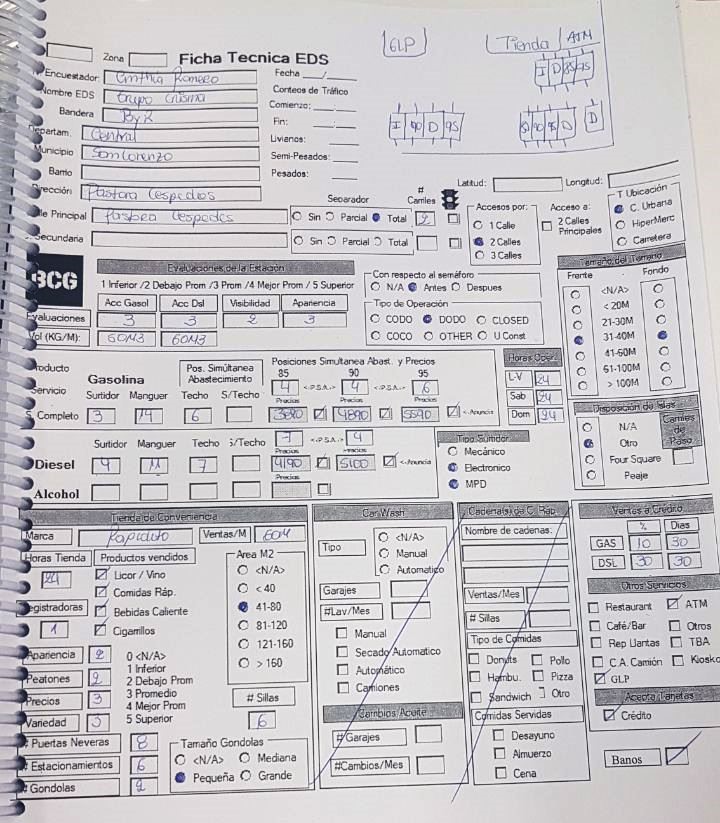 GLP
Tienda / ATM
Zona
Ficha Tecnica EDS
Encuestador Cinthia Romero
Fecha __/__
Nombre EDS Grupo Crisma
Conteos de Tráfico
I D 85 95
Bandera ByR
Comienzo:
Departam. Central
Fin:
I 90 D 95
90 95 D
D
Municipio San Lorenzo
Livianos:
Semi-Pesados:
Barrio
Pesados:
Dirección Pastora Cespedes
Latitud:
Longitud:
Separador
# Carriles
Accesos por:
Acceso a:
T Ubicación
Principal Pastora Cespedes
Sin Parcial Total 2
1 Calle
2 Calles
3 Calles
2 Calles Principales
C. Urbana
HiperMerc
Carretera
Secundaria
Sin Parcial Total
BCG
Evaluaciones de la Estación
1 Inferior /2 Debajo Prom /3 Prom /4 Mejor Prom / 5 Superior
Acc Gasol Acc Dsl Visibilidad Apariencia
Evaluaciones 3 3 2 3
Vol (KG/M): 60M3 60M3
Con respecto al semáforo
N/A Antes Despues
Tipo de Operación
CODO DODO CLOSED
COCO OTHER U Const
Tamaño del Terreno
Frente Fondo
<N/A>
< 20M
21-30M
31-40M
41-60M
61-100M
> 100M
Producto
Gasolina
Pos. Simúltanea Abastecimento
Posiciones Simultanea Abast. y Precios
85 90 95
Servicio
Surtidor Manguer Techo S/Techo
4 <-P.S.A.-> 4 <-P.S.A.-> 6
Precios Precios Precios
S. Completo 3 14 6
3890 4890 5590 <-Anuncia
Horas Oper.
L-V 24
Sab 24
Dom 24
Surtidor Manguer Techo s/Techo
7 <-P.S.A.-> 4
Precios Precios
Diesel 4 11 7
4190 5100 <-Anuncia
Alcohol
Tipo Surtidor
Mecánico
Electronico
MPD
Disposición de Islas
N/A
Otro
Four Square
Peaje
Carriles de Paso
Tienda de Conveniencia
Marca Rapidito
Ventas/M 60M
Horas Tienda
24
Productos vendidos
Licor / Vino
Comidas Ráp.
Bebidas Caliente
Cigarrillos
Registradoras
1
Area M2
<N/A>
< 40
41-80
81-120
121-160
> 160
Apariencia 2
Peatones 2
Precios 3
Variedad 3
0 <N/A>
1 Inferior
2 Debajo Prom
3 Promedio
4 Mejor Prom
5 Superior
# Sillas
6
# Puertas Neveras 8
# Estacionamientos 6
# Gondolas 2
Tamaño Gondolas
<N/A> Mediana
Pequeña Grande
Car Wash
Tipo
<N/A>
Manual
Automatico
Garajes
#Lav/Mes
Manual
Secado Automatico
Automático
Camiones
Cambios Aceite
#Garajes
#Cambios/Mes
Cadena(s) de C. Ráp
Nombre de cadenas:
Ventas/Mes
# Sillas
Tipo de Comidas
Donuts Pollo
Hambu. Pizza
Sandwich Otro
Comidas Servidas
Desayuno
Almuerzo
Cena
Ventas a Crédito
% Dias
GAS 10 30
DSL 30 30
Otros Servicios
Restaurant ATM
Café/Bar Otros
Rep Llantas TBA
C.A. Camión Kiosko
GLP
Acepta Tarjetas
Crédito
Banos